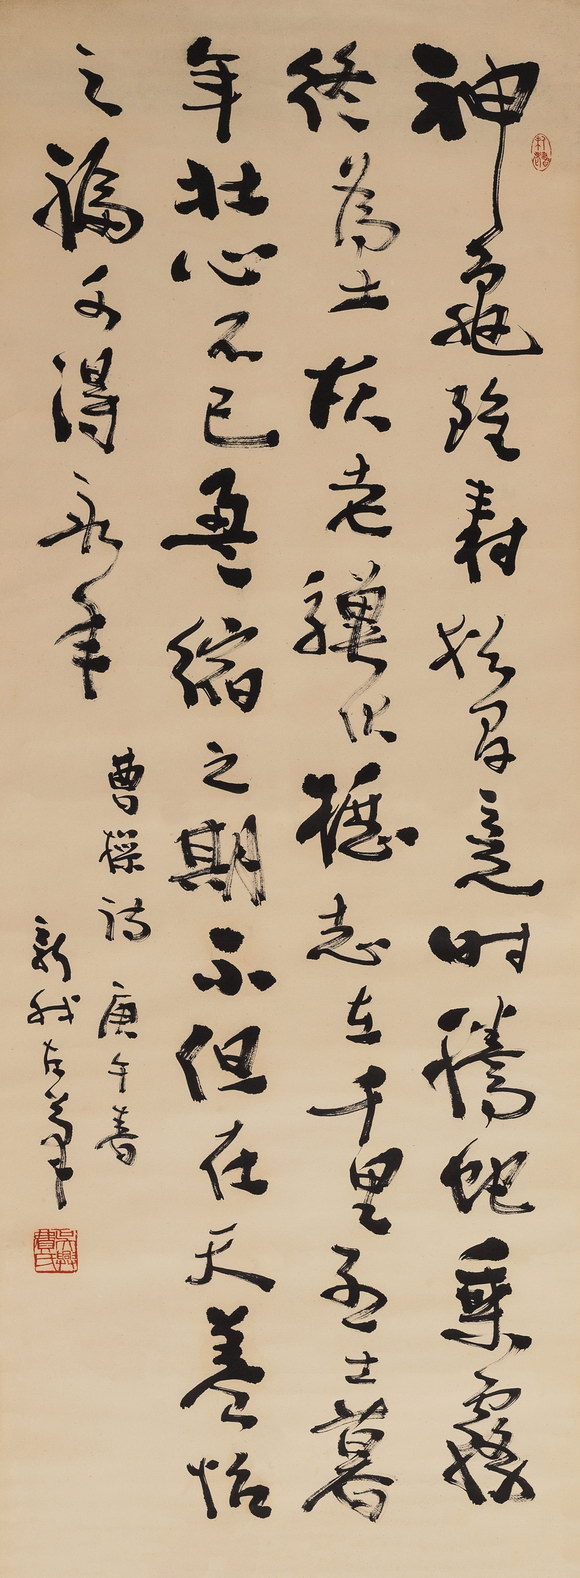 神龜雖壽猶有竟时騰蛇乘霧
終為土灰老驥伏櫪志在千里烈士暮
年壯心不已盈縮之期不但在天養怡
之福可得永年
曹操詩 庚午春
新我左筆
吳興費氏